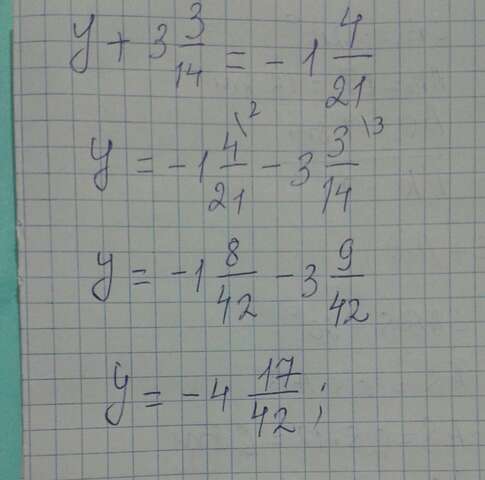 y + 3 3/14 = -1 4/21
y = -1 4\2/21 - 3 3\3/14
y = -1 8/42 - 3 9/42
y = -4 17/42;